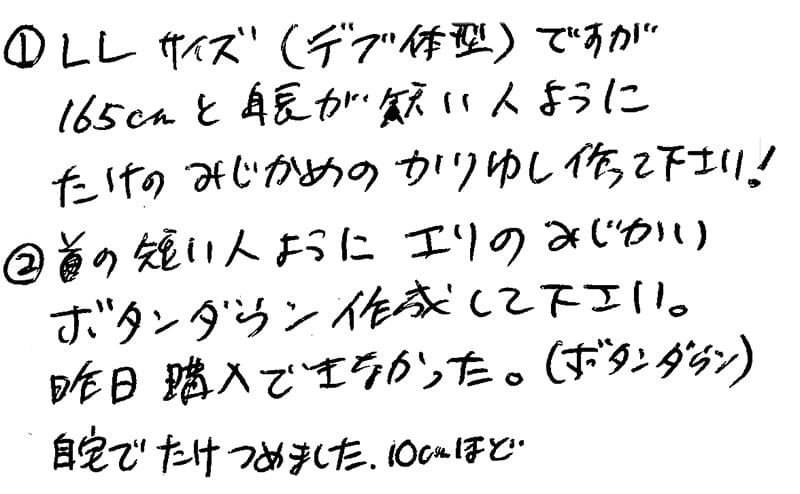 ①LLサイズ(デブ体型)ですが
165cmと身長が短い人ように
たけのみじかめのかりゆし作って下さい!
②首の短い人ように エリのみじかい
ボタンダウン作成して下さい。
昨日購入できなかった。(ボタンダウン)
自宅でたけつめました.10cmほど